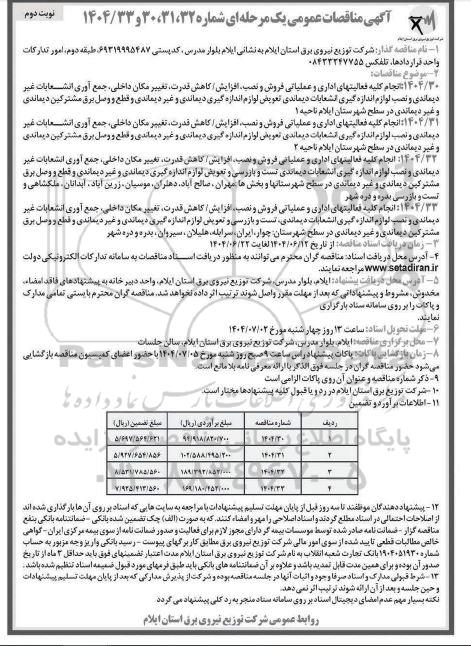 نوبت دوم
آگهی مناقصات عمومی یک مرحله ای شماره ۳۰،۳۱،۳۲ و ۱۴۰۴/۳۳
شرکت توزیع نیروی برق استان ایلام
۱- نام مناقصه گذار: شرکت توزیع نیروی برق استان ایلام به نشانی ایلام بلوار مدرس، کدپستی ۶۹۳۱۹۹۵۴۸۷، طبقه دوم، امور تدارکات
واحد قراردادها، تلفکس ۰۸۴۳۳۳۴۷۷۵۵
۲- موضوع مناقصات:
۱۴۰۴/۳۰: انجام کلیه فعالیتهای اداری و عملیاتی فروش و نصب، افزایش/ کاهش قدرت، تغییر مکان داخلی، جمع آوری انشعابات غیر
دیماندی و نصب لوازم اندازه گیری انشعابات دیماندی تعویض لوازم اندازه گیری دیماندی و غیر دیماندی و قطع و وصل برق مشترکین دیماندی
و غیر دیماندی در سطح شهرستان ایلام ناحیه ۱
۱۴۰۴/۳۱: انجام کلیه فعالیتهای اداری و عملیاتی فروش و نصب، افزایش/ کاهش قدرت، تغییر مکان داخلی، جمع آوری انشعابات غیر
دیماندی و نصب لوازم اندازه گیری انشعابات دیماندی تعویض لوازم اندازه گیری دیماندی و غیر دیماندی و قطع و وصل برق مشترکین دیماندی
و غیر دیماندی در سطح شهرستان ایلام ناحیه ۲
۱۴۰۴/۳۲: انجام کلیه فعالیتهای اداری و عملیاتی فروش و نصب، افزایش/ کاهش قدرت، تغییر مکان داخلی، جمع آوری انشعابات غیر
دیماندی و نصب لوازم اندازه گیری انشعابات دیماندی تست و بازرسی و تعویض لوازم اندازه گیری دیماندی و غیر دیماندی و قطع و وصل برق
مشترکین دیماندی و غیر دیماندی در سطح شهرستانها و بخش ها: مهران، صالح آباد، دهلران، موسیان، زرین آباد، آبدانان، ملکشاهی و
تست و بازرسی بدره و دره شهر
۱۴۰۴/۳۳: انجام کلیه فعالیتهای اداری و عملیاتی فروش و نصب، افزایش/ کاهش قدرت، تغییر مکان داخلی، جمع آوری انشعابات غیر
دیماندی و نصب لوازم اندازه گیری انشعابات دیماندی، تست و بازرسی و تعویض لوازم اندازه گیری دیماندی و غیر دیماندی و قطع و وصل برق
مشترکین دیماندی و غیر دیماندی در سطح شهرستان: چوار، ایوان، سرابله، هلیلان، سیروان، بدره و دره شهر
۳- زمان دریافت اسناد مناقصه: از تاریخ ۱۴۰۴/۰۶/۱۲ لغایت ۱۴۰۴/۰۶/۲۲
۴- آدرس محل دریافت اسناد: مناقصه گران محترم می توانند به منظور دریافت اسناد مناقصات به سامانه تدارکات الکترونیکی دولت
www.setadiran.ir مراجعه نمایند.
۵- آدرس محل دریافت پیشنهاد: ایلام، بلوار مدرس، شرکت توزیع نیروی برق استان ایلام، واحد دبیرخانه به پیشنهادهای فاقد امضاء،
مخدوش، مشروط و پیشنهاداتی که بعد از مهلت مقرر واصل شوند ترتیب اثر داده نخواهد شد. مناقصه گران محترم بایستی تمامی مدارک
و پاکات را بر روی سامانه ستاد بارگذاری
نمایند.
۶- مهلت تحویل اسناد: ساعت ۱۳ روز چهارشنبه مورخ ۱۴۰۴/۰۷/۰۲
۷- محل برگزاری مناقصه: ایلام، بلوار مدرس، شرکت توزیع نیروی برق استان ایلام، سالن جلسات
۸- زمان بازگشایی پاکات: پاکات پیشنهاد راس ساعت ۹ صبح روز شنبه مورخ ۱۴۰۴/۰۷/۰۵ با حضور اعضای کمیسیون مناقصه بازگشایی
می شود حضور مناقصه گران در جلسه فوق الذکر با ارائه معرفی نامه بلامانع است.
۹- ذکر شماره مناقصه و عنوان آن روی پاکات الزامی است
۱۰- شرکت توزیع برق استان ایلام در رد و یا قبول کلیه پیشنهادها مختار است.
۱۱- اطلاعات برآورد و تضمین
ردیف شماره مناقصه مبلغ برآوردی (ریال) مبلغ تضمین (ریال)
۱ ۱۴۰۴/۳۰ ۹۴/۹۱۸/۸۲۰/۷۰۰ ۵/۶۹۷/۵۶۴/۶۲۱
۲ ۱۴۰۴/۳۱ ۱۰۲/۵۸۸/۴۹۵/۲۰۰ ۵/۹۲۷/۶۵۴/۸۵۶
۳ ۱۴۰۴/۳۲ ۱۸۹/۳۹۲/۸۵۲/۰۰۰ ۸/۵۳۱/۷۸۵/۵۶۰
۴ ۱۴۰۴/۳۳ ۱۶۹/۱۸۰/۴۵۲/۰۰۰ ۷/۹۲۵/۴۱۳/۵۶۰
۱۲- پیشنهاد دهندگان موظفند تا سه روز قبل از پایان مهلت تسلیم پیشنهادات با مراجعه به سایت هایی که اسناد بر روی آن ها بارگذاری شده اند
از اصلاحات احتمالی در اسناد مطلع گردند و اسناد اصلاحی را مهر و امضاء کنند. که به صورت (الف) چک تضمین شده بانکی - ضمانتنامه بانکی بنفع
مناقصه گزار - ضمانت نامه صادر شده توسط موسسات بیمه گر دارای مجوز لازم برای فعالیت و صدور ضمانت نامه از سوی بیمه مرکزی ایران - گواهی
خالص مطالبات قطعی تایید شده از سوی امور مالی شرکت توزیع نیروی برق مطابق کاربرگهای پیوست - رسید بانکی واریز وجه مزبور به حساب
شماره ۱۹۰۴۰۵۱۹۳۰ بانک تجارت شعبه انقلاب به نام شرکت توزیع نیروی برق استان ایلام مدت اعتبار تضمینهای فوق باید حداقل ۳ ماه از تاریخ
صدور آن بوده و برای همین مدت قابل تمدید باشد و علاوه بر آن ضمانتنامه های بانکی باید طبق فرمهای مورد قبول ضمیمه اسناد تنظیم شده باشد.
۱۳- شرط قبولی مدارک و اسناد صرفا وجود و اثبات آنها در جلسه مناقصه بوده و شرکت از پذیرش مدارکی که بعد از پایان مهلت تسلیم پیشنهادات
و حین جلسه و بعد از آن ارائه شوند ترتیب اثر نمی دهد.
نکته بسیار مهم عدم امضای دیجیتال اسناد بر روی سامانه ستاد منجر به رد کلی پیشنهاد می گردد
روابط عمومی شرکت توزیع نیروی برق استان ایلام